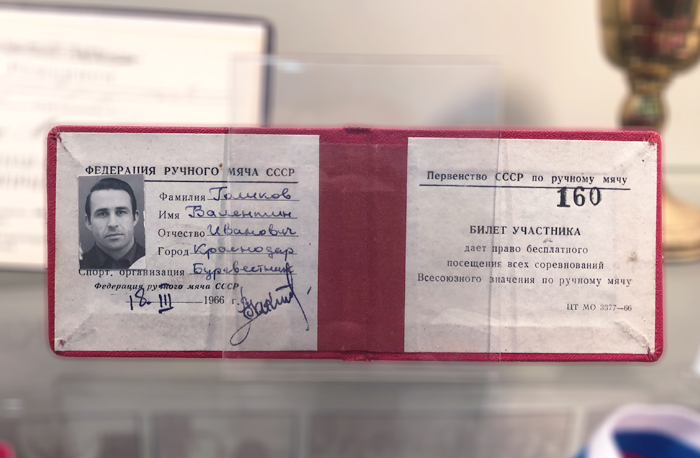 ФЕДЕРАЦИЯ РУЧНОГО МЯЧА СССР
Фамилия Голиков
Имя Валентин
Отчество Иванович
Город Краснодар
Спорт. организация Буревестник
Федерация ручного мяча СССР
18. III 1966 г.
Первенство СССР по ручному мячу
160
БИЛЕТ УЧАСТНИКА
дает право бесплатного
посещения всех соревнований
Всесоюзного значения по ручному мячу
ЦТ МО 3377—66